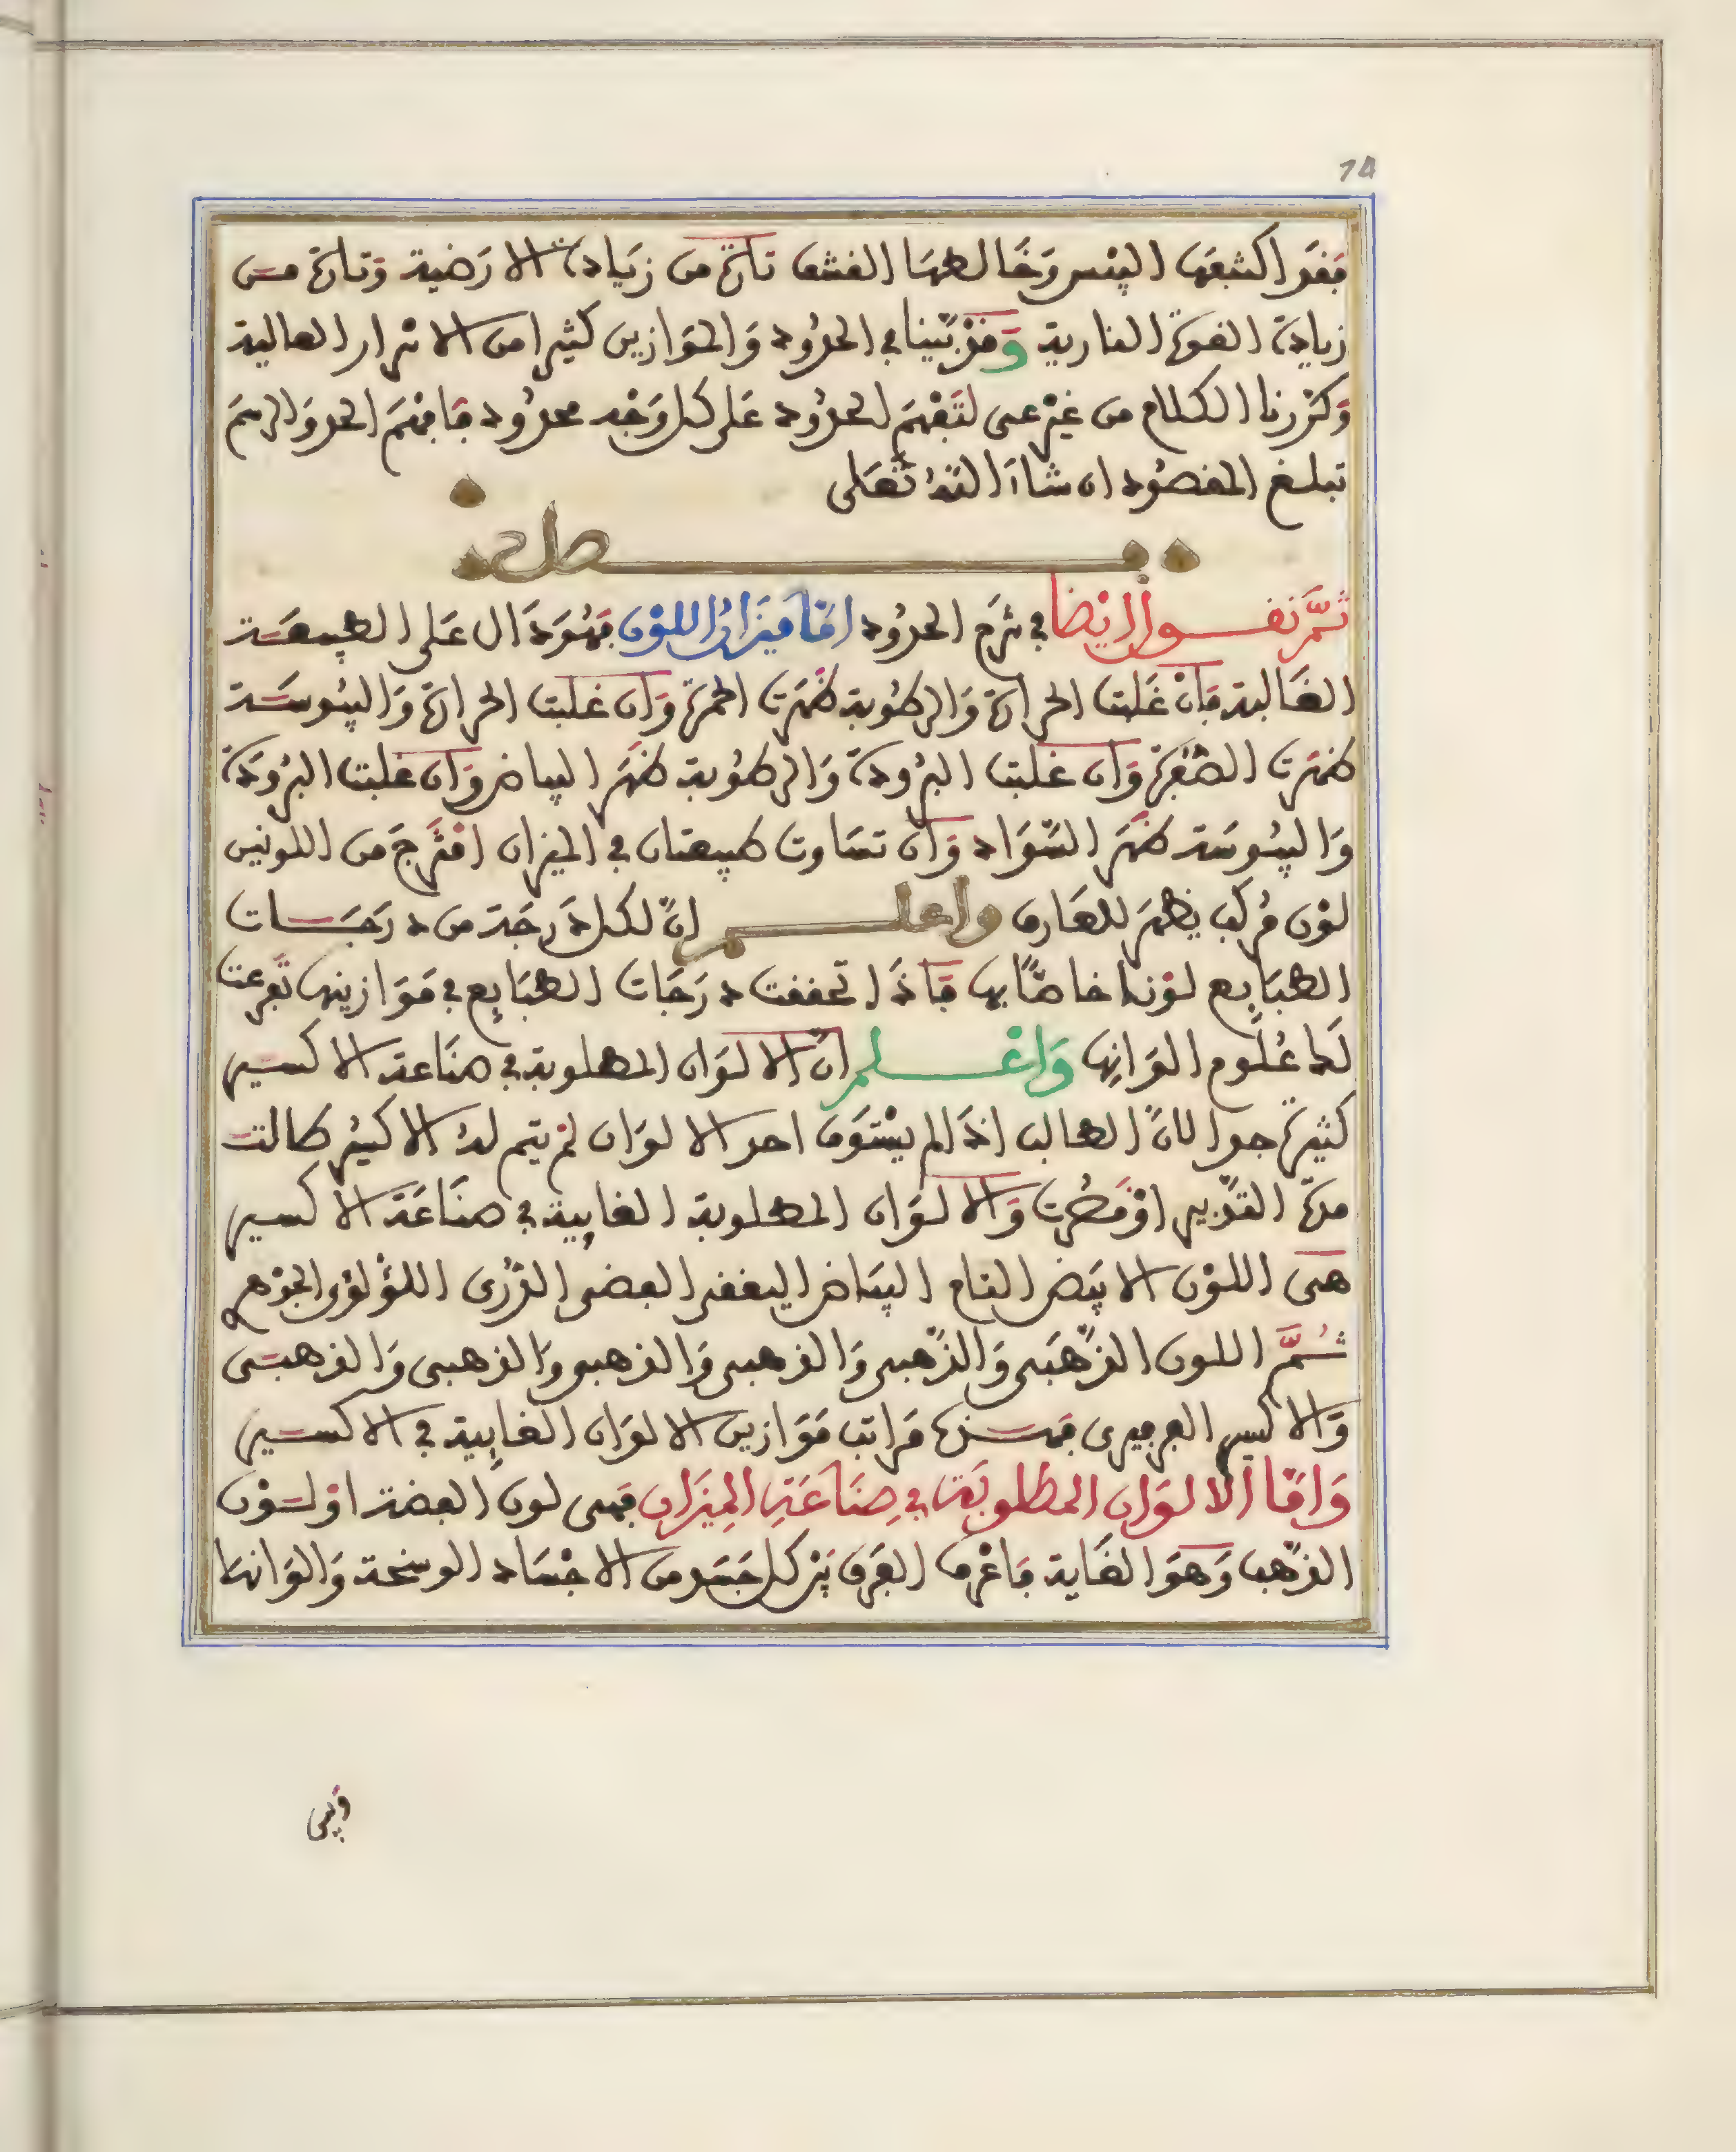 74
فقد اكتنفها اليبس وخالطها القشف تارة من زيادة الارضية وتارة من
زيادة القوة النارية وقد بينا في الحدود والموازين كثيرا من الاسرار العالية
وكررنا الكلام من غير عى لتفهم الحدود على كل وجه محدود فافهم الحد والرسم
تبلغ المقصود ان شاء الله تعلى
فصل
ثم نقول ايضا في شرح الحدود اما ميزان اللون فهو دال على الطبيعة
الغالبة فان غلبت الحرارة والرطوبة ظهرت الحمرة وان غلبت الحرارة واليبوسة
ظهرت الصفرة وان غلبت البرودة والرطوبة ظهر البياض وان غلبت البرودة
واليبوسة ظهر السواد وان تساوت طبيعتان في الميزان امتزج من اللونين
لون مركب يظهر للعارف واعلم ان لكل درجة من درجات
الطبايع لونا خاصا بها فاذا تحققت درجات الطبايع في موازينها تفرعت
لك علوم الوانها واعلم ان الالوان المطلوبة في صناعة الاكسير
كثيرة جدا لان الطالب اذا لم يستوف احد الالوان لم يتم له الاكسير طالت
مدة التدبير او قصرت والالوان المطلوبة الغايية في صناعة الاكسير
هى اللون الابيض التام البياض اليقق الفضى الدرى اللؤلؤى الجوهرى
ثم اللون الذهبى والذهبى والذهبى والذهبى والذهبى والذهبى
والاكسير الفرفيرى فهذه مراتب موازين الالوان الغايية في الاكسير
واما الالوان المطلوبة في صناعة الميزان فهى لون الفضة او لون
الذهب وهو الغاية فاعرف الفرق بين كل جسد من الاجساد الوسخة والوانها
وبين